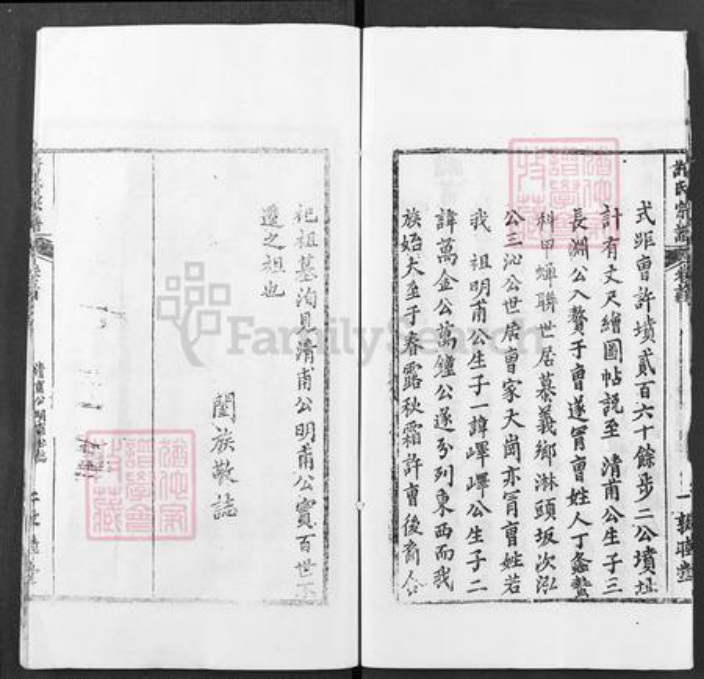 許氏宗譜
式距曾許墳貳百六十餘步二公墳址
計有丈尺繪圖帖説至 清甫公生子三
長淵公入贅于曾遂冐曾姓人丁螽蟄
科甲蟬聯世居慕義鄉淋頭坂次泓
公三沁公世居曾家大崗亦冐曾姓若
我 祖明甫公生子一諱嶧嶧公生子二
諱萬金公萬鐘公遂分列東西而我
族始大至于春露秋霜許曾後裔合
祀祖墓洵見清甫公明甫公實百世不
遷之祖也
闔族敬誌
猶他家
譜學會
收藏
猶他家
譜學會
收藏
FamilySearch